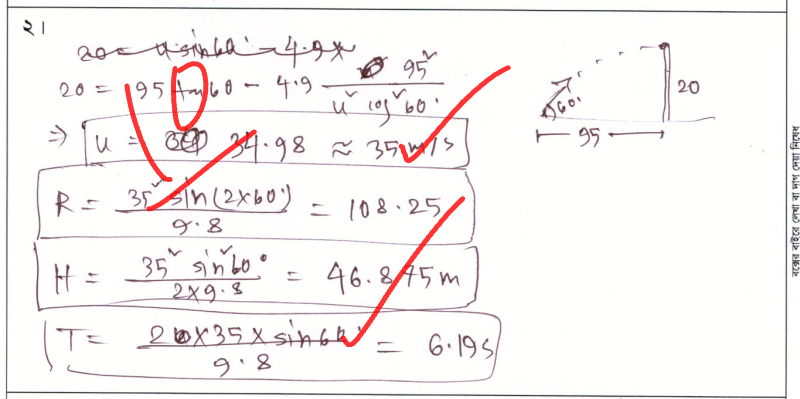 ২।
20 = u sin60 - 4.9x
20 = 95 tan 60 - 4.9 95² / u² cos² 60°
⇒ u = 34.98 ≈ 35 m/s
R = 35² sin(2×60°) / 9.8 = 108.25
H = 35² sin² 60° / 2×9.8 = 46.875m
T = 2×35×sin60° / 9.8 = 6.19s
60°
20
95
বক্সের বাইরে লেখা বা দাগ দেয়া নিষেধ